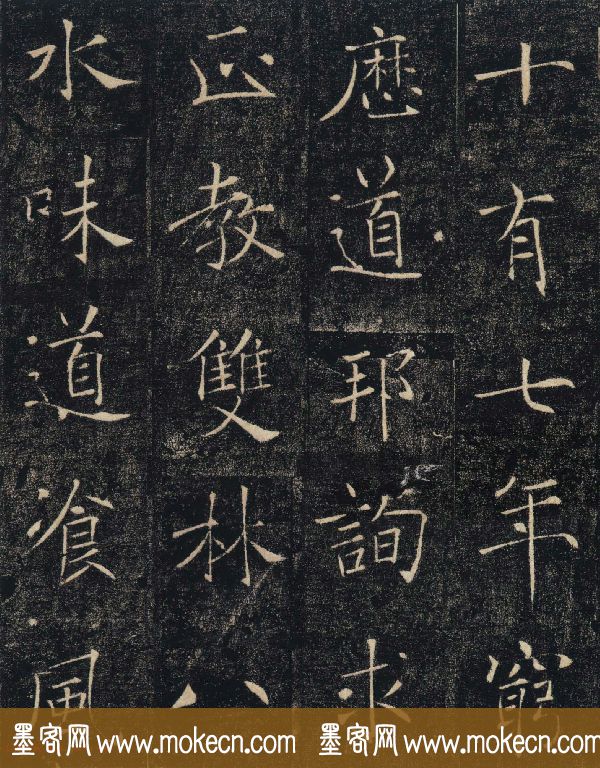 十有七年窮
歷道邦詢求
正教雙林八
水味道飡風
墨客网 www.mokecn.com 墨客网 www.mokecn.com